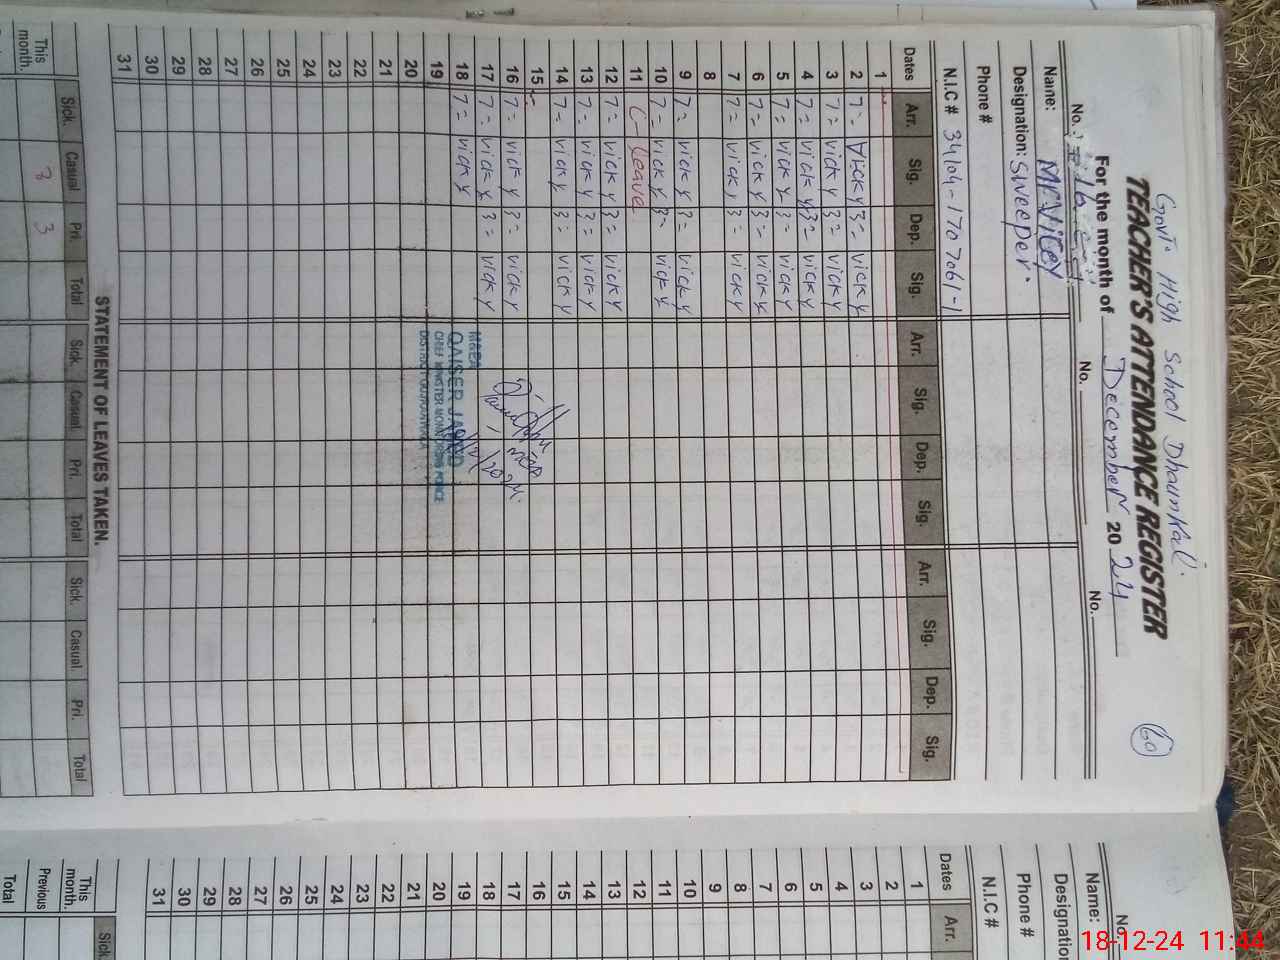 Govt. High School Dhaunkal.
TEACHER'S ATTENDANCE REGISTER
60
For the month of December 2024
No. No. No.
Name: Mr Vicky
Designation: Sweeper.
Phone #
N.I.C # 34104-1707061-1
Dates Arr. Sig. Dep. Sig. Arr. Sig. Dep. Sig. Arr. Sig. Dep. Sig.
1
2 7= Vicky 3= Vicky
3 7= Vicky 3= Vicky
4 7= Vicky 3= Vicky
5 7= Vicky 3= Vicky
6 7= Vicky 3= Vicky
7 7= Vicky 3= Vicky
8
9 7= Vicky 3= Vicky
10 7= Vicky 3= Vicky
11 C-Leave
12 7= Vicky 3= Vicky
13 7= Vicky 3= Vicky
14 7= Vicky 3= Vicky
15
16 7= Vicky 3= Vicky
17 7= Vicky 3= Vicky
18 7= Vicky
MEA
QAISER JAVED
CHIEF MINISTER MONITORING FORCE
DISTRICT GUJRANWALA
19
20
21
22
23
24
25
26
27
28
29
30
31
STATEMENT OF LEAVES TAKEN.
Sick. Casual Pri. Total Sick. Casual. Pri. Total Sick. Casual. Pri. Total
This month. 3 3
No.
Name:
Designation
Phone #
N.I.C #
Dates Arr.
1
2
3
4
5
6
7
8
9
10
11
12
13
14
15
16
17
18
19
20
21
22
23
24
25
26
27
28
29
30
31
Sick
This month.
Previous
Total
18-12-24 11:44